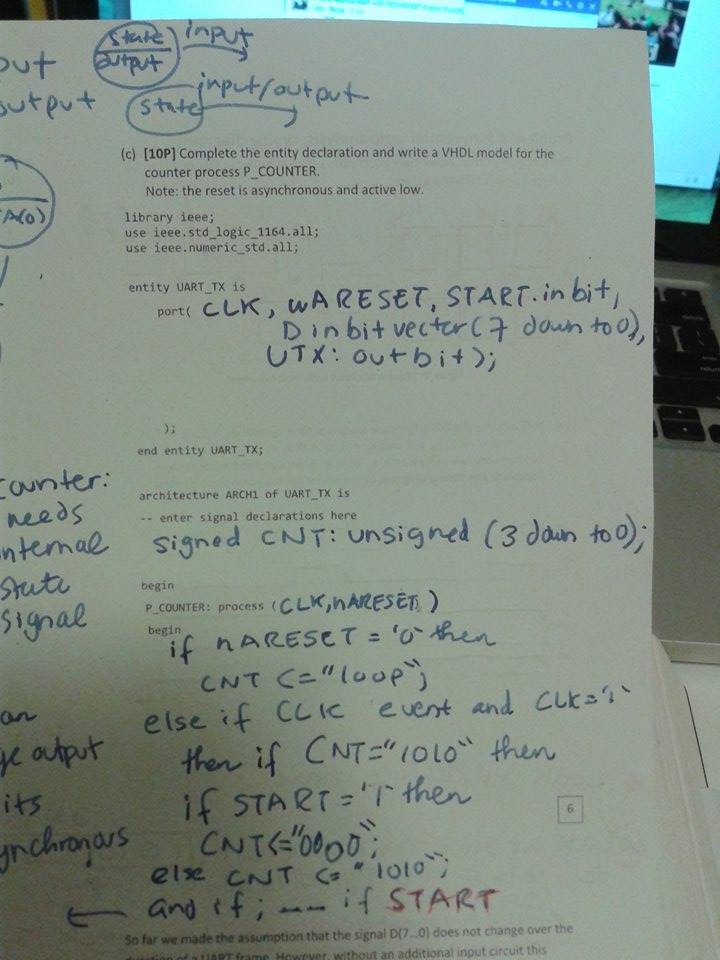 state input
output
out
output
input/output
state
(c) [10P] Complete the entity declaration and write a VHDL model for the
counter process P_COUNTER.
Note: the reset is asynchronous and active low.
library ieee;
use ieee.std_logic_1164.all;
use ieee.numeric_std.all;
entity UART_TX is
port( CLK, nARESET, START. in bit,
D in bit vector (7 down to 0),
UTX: out bit);
);
end entity UART_TX;
counter:
needs
internal
state
signal
architecture ARCH1 of UART_TX is
-- enter signal declarations here
signed CNT: unsigned (3 down to 0);
begin
P_COUNTER: process (CLK, nARESET)
begin
if nARESET = '0' then
CNT <= "100P";
else if CLK event and CLK='1'
an
then if CNT="1010" then
output
its
if START = '1' then
CNT<="0000";
else CNT <= "1010";
and if; --- if START
6
So far we made the assumption that the signal D(7...0) does not change over the
duration of a UART frame. However, without an additional input circuit this